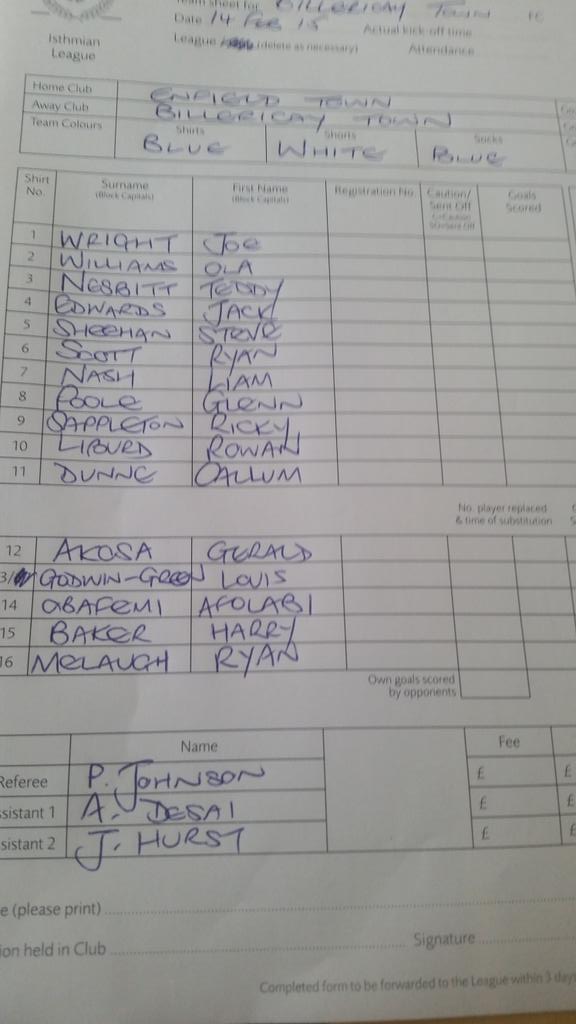 Team sheet for BILLERICAY TOWN FC
Date 14 FEB 15 Actual kick-off time
League (delete as necessary) Attendance
Isthmian
League
Home Club ENFIELD TOWN
Away Club BILLERICAY TOWN
Team Colours Shirts BLUE Shorts WHITE Socks BLUE
Shirt No. Surname (Block Capitals) First Name (Block Capitals) Registration No. Caution/ Sent Off Goals Scored
1 WRIGHT JOE
2 WILLIAMS OLA
3 NESBITT TEDDY
4 EDWARDS JACK
5 SHEEHAN STEVE
6 SCOTT RYAN
7 NASH LIAM
8 POOLE GLENN
9 SAPPLETON RICKY
10 LIBURD ROWAN
11 DUNNE CALLUM
No. player replaced
& time of substitution
12 AKOSA GERALD
GODWIN-GREEN LOUIS
14 OBAFEMI AFOLABI
15 BAKER HARRY
16 MCLAUGH RYAN
Own goals scored
by opponents
Name Fee
Referee P. JOHNSON £ £
ssistant 1 A. DESAI £ £
sistant 2 J. HURST £ £
e (please print)
ion held in Club Signature
Completed form to be forwarded to the League within 3 days